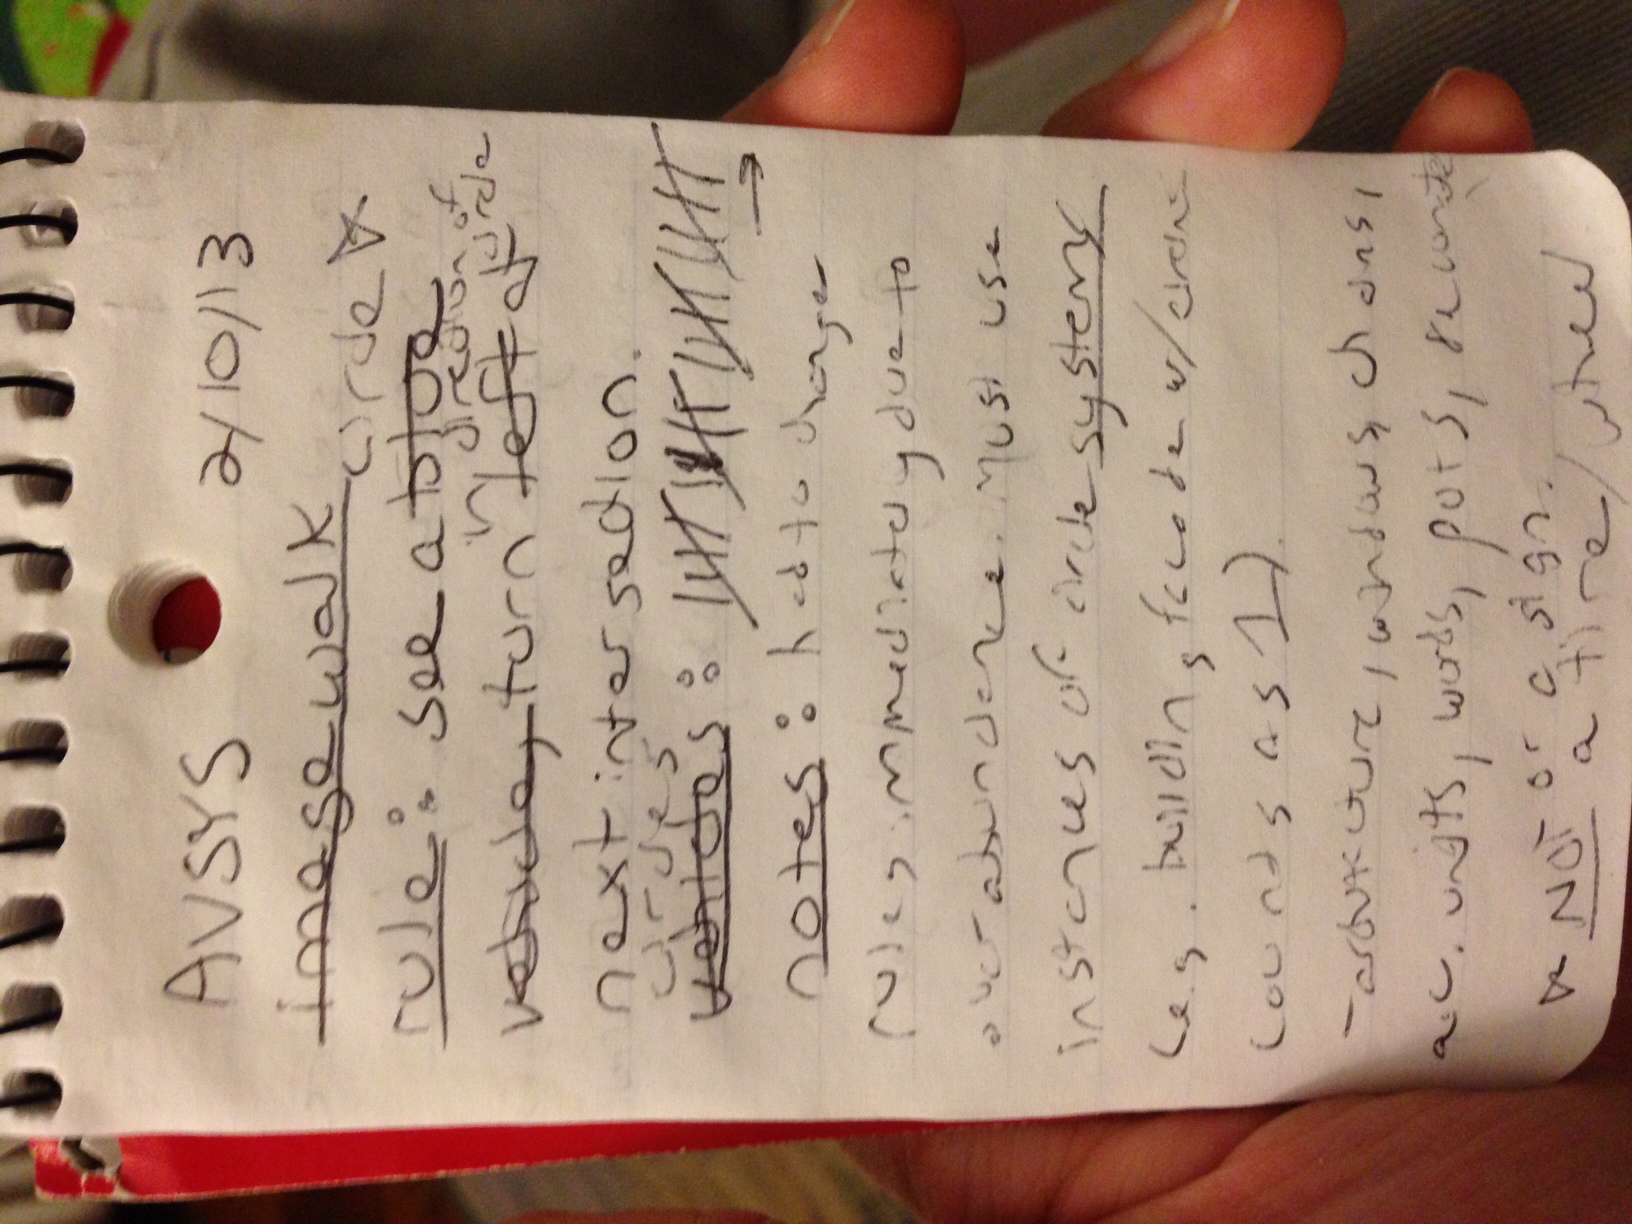 AVSYS 2/10/13
image walk
circle *
rule: see a blue
in direction of circle
vehicle, turn left at
next intersection.
circles
vehicles:
notes: had to change
rules immediately due to
overabundance. Must use
instances of circle systems
(e.g. building facade w/ circles
counts as 1).
- architecture, windows, chains,
a.c. units, words, pots, decorate
or a sign.
* NOT a tire/wheel